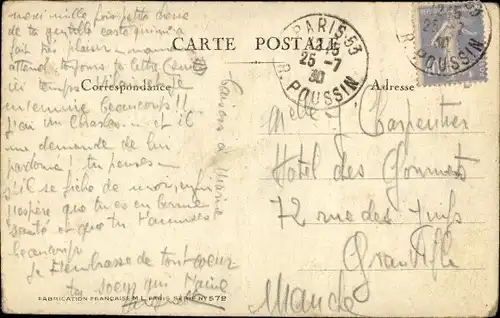 merci mille fois petite
de ta gentille carte qui m'a
fait très plaisir - maman
attend toujours ta lettre
temps
m'ennuie beaucoup!!
J'ai un - et il
me demande de lui
! tu penses
s'il se fiche de moi, enfin
j'espère que tu es en bonne
santé et que tu t'amuses
beaucoup
Je t'embrasse de tout coeur
ta soeur qui t'aime
CARTE POSTALE
Correspondance
Adresse
à Marie
PARIS 53
1215
25-7
30
R. POUSSIN
1215
25-7
30
R. POUSSIN
Melle J. Carpentier
Hotel des Gourmets
72 rue des Juifs
Granville
Manche
FABRICATION FRANÇAISE M.L. PARIS SÉRIE N° 572